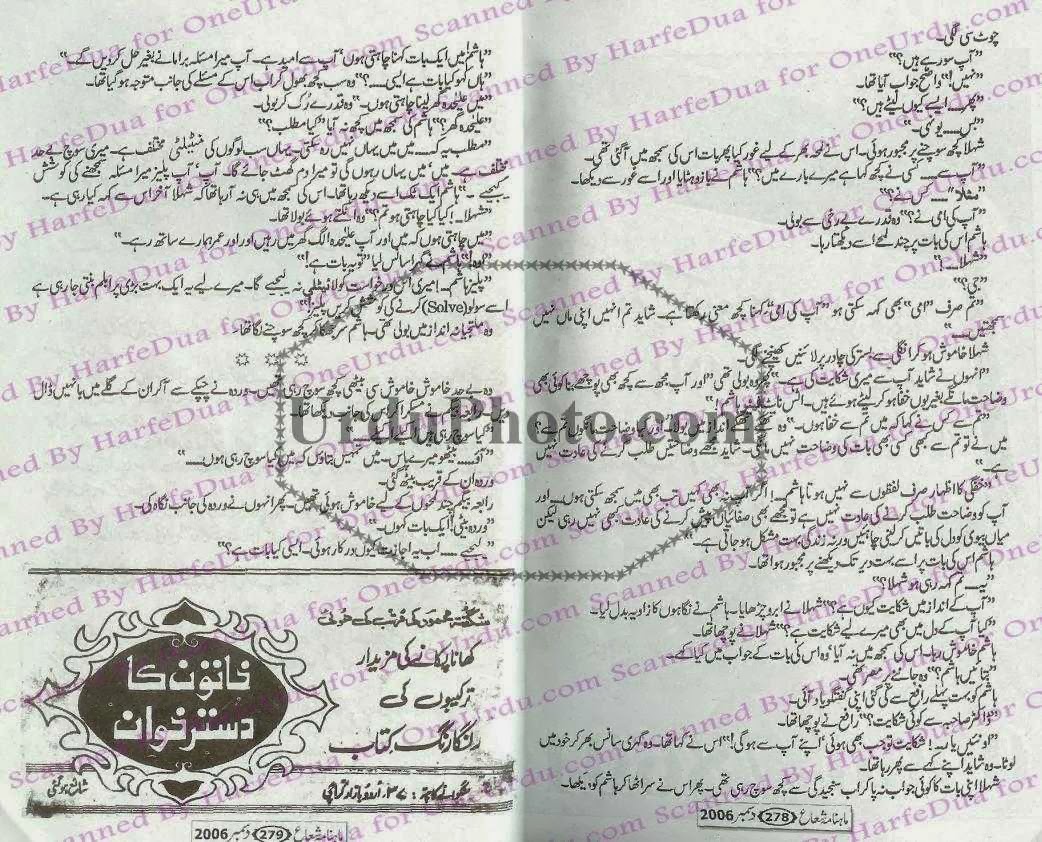 چوٹ سی لگی۔
"آپ سو رہے ہیں؟"
"نہیں!" واضح جواب آیا تھا۔
"پھر۔ ایسے کیوں لیٹے ہیں؟"
"بس۔۔۔۔ یونہی۔"
شہلا کچھ سوچنے پر مجبور ہوئی۔ اس نے لمحہ بھر کے لیے غور کیا پھر بات اس کی سمجھ میں آ گئی تھی۔
"آپ سے۔۔۔۔ کسی نے کچھ کہا ہے میرے بارے میں؟" ہاشم نے بازو ہٹایا اور اسے غور سے دیکھا۔
"مثلاً"۔۔۔۔ کس نے؟"
"آپ کی امی نے؟" وہ قدرے بے رخی سے بولی۔
ہاشم اس کی بات پر چند لمحے اسے دیکھتا رہا۔
"شہلا۔۔۔۔"
"جی؟"
"تم صرف 'امی' بھی کہہ سکتی ہو "آپ کی امی" کہنا کچھ معنی رکھتا ہے۔ شاید تم انہیں اپنی ماں نہیں
سمجھتیں۔۔۔۔"
شہلا خاموش ہو کر انگلی سے بستر کی چادر پر لائنیں کھینچنے لگی۔
"انہوں نے شاید آپ سے میری شکایت کی ہے۔" پھر وہ بولی تھی "اور آپ مجھ سے کچھ بھی پوچھے بنا کوئی بھی
وضاحت مانگے بغیر یوں خفا ہو کر لیٹے ہوئے ہیں۔ اٹس ناٹ ہاشم!"
"تم سے کس نے کہا کہ میں تم سے خفا ہوں۔" وہ انداز میں بولا "اور کیا وضاحت مانگوں تم سے؟
میں نے تو تم سے کبھی کسی بھی بات کی وضاحت نہیں مانگی۔ شاید مجھے وضاحتیں طلب کرنے کی عادت نہیں
ہے۔"
"خفگی کا اظہار صرف لفظوں سے نہیں ہوتا ہاشم۔! اگر آپ نہ بھی کہیں تب بھی میں سمجھ سکتی ہوں۔ اور
آپ کو وضاحت طلب کرنے کی عادت نہیں ہے تو مجھے بھی صفائیاں پیش کرنے کی عادت کبھی نہیں رہی لیکن
میاں بیوی کو دل کی باتیں کر لینی چاہئیں ورنہ زندگی بہت مشکل ہو جاتی ہے۔"
ہاشم اس کی بات پر اسے بہت دیر تک دیکھنے پر مجبور ہوا تھا۔
"یہ۔ تم کہہ رہی ہو شہلا؟"
"آپ کے انداز میں شکایت کیوں ہے؟" شہلا نے ابرو چڑھایا۔ ہاشم نے نگاہوں کا زاویہ بدل لیا۔
"کیا آپ کے دل میں بھی میرے لیے شکایت ہے؟" شہلا نے پوچھا تھا۔
ہاشم خاموش رہا۔ اس کی سمجھ میں نہ آیا' وہ اس کی بات کے جواب میں کیا کہے۔
"بتائیں ہاشم؟" وہ جاننے پر مصر تھی۔
ہاشم کو بہت پہلے رافع سے کی گئی اپنی گفتگو یاد آئی۔
"ڈاکٹر صاحبہ سے کوئی شکایت؟" رافع نے پوچھا تھا۔
"اونہیں یار۔! شکایت تو جب بھی ہوئی' اپنے آپ سے ہوگی!" اس نے کہا تھا۔ وہ گہری سانس بھر کر خود میں
لوٹا۔ وہ شاید اپنے کہے سے پھر رہا تھا۔
شہلا اپنی بات کا کوئی جواب نہ پا کر اب سنجیدگی سے کچھ سوچ رہی تھی۔ پھر اس نے سر اٹھا کر ہاشم کو دیکھا۔
ماہنامہ شعاع 278 دسمبر 2006
"ہاشم! میں ایک بات کہنا چاہتی ہوں' آپ سے امید ہے۔ آپ میرا مسئلہ برا مانے بغیر حل کر دیں گے۔"
"ہاں کہو کیا بات ہے ایسی۔۔۔۔؟" وہ سب کچھ بھول کر اب اس کے مسئلے کی جانب متوجہ ہو گیا تھا۔
"میں علیحدہ گھر لینا چاہتی ہوں۔" وہ قدرے رک کر بولی۔
"علیحدہ گھر؟" ہاشم کی سمجھ میں کچھ نہ آیا "کیا مطلب؟"
"مطلب یہ کہ۔۔۔۔ میں میں یہاں نہیں رہ سکتی۔ یہاں سب لوگوں کی مینٹیلٹی مختلف ہے۔ میری سوچ بے حد
مختلف ہے۔ میں' میں یہاں رہوں گی تو میرا دم گھٹ جائے گا۔ آپ' آپ پلیز میرا مسئلہ سمجھنے کی کوشش
کیجیے۔" ہاشم ایک ٹک اسے دیکھ رہا تھا۔ اس کی سمجھ میں ہی نہ آ رہا تھا کہ شہلا آخر اس سے کہہ کیا رہی ہے۔
"شہلا۔! کیا کیا چاہتی ہو تم؟" وہ اٹکتے ہوئے بولا تھا۔
"میں چاہتی ہوں کہ میں اور آپ علیحدہ الگ گھر میں رہیں اور اور عمر ہمارے ساتھ رہے۔"
"اوہ!" ہاشم نے گہرا سانس لیا "تو یہ بات ہے!"
"پلیز ہاشم۔! میری اس درخواست کو لائیٹلی نہ لیجیے گا۔ میرے لیے یہ ایک بہت بڑی پرابلم بنتی جا رہی ہے
اسے سولو (Solve) کرنے کی کوشش کریں پلیز!"
وہ ملتجیانہ انداز میں بولی تھی۔ ہاشم سر جھکا کر کچھ سوچنے لگا تھا۔
☼ ☼ ☼
وہ بے حد خاموش خاموش سی بیٹھی کچھ سوچ رہی تھیں۔ وردہ نے چپکے سے آ کر ان کے گلے میں بانہیں ڈال
مسکرا کر اس کی جانب دیکھا تھا۔
"کیا سوچ رہی ہیں
"آؤ۔۔۔۔ بیٹھو میرے پاس۔ میں تمہیں بتاؤں کہ میں کیا سوچ رہی ہوں۔۔۔۔"
وردہ ان کے قریب بیٹھ گئی۔
رابعہ بیگم چند لمحوں کے لیے خاموش ہوئی تھیں۔ پھر انہوں نے وردہ کی جانب نگاہ کی۔
"وردہ بیٹی! ایک بات کہوں۔"
"کہیے۔۔۔۔ اب یہ اجازت کیوں درکار ہوئی۔ ایسی کیا بات ہے؟"
کھانا پکانے کی مزیدار
ترکیبوں کی
رنگارنگ کتاب
خاتون کا
دسترخوان
شائع ہو گئی
۳۷۔ اردو بازار کراچی
ماہنامہ شعاع 279 دسمبر 2006
UrduPhoto.com
Scanned By HarfeDua for OneUrdu.com